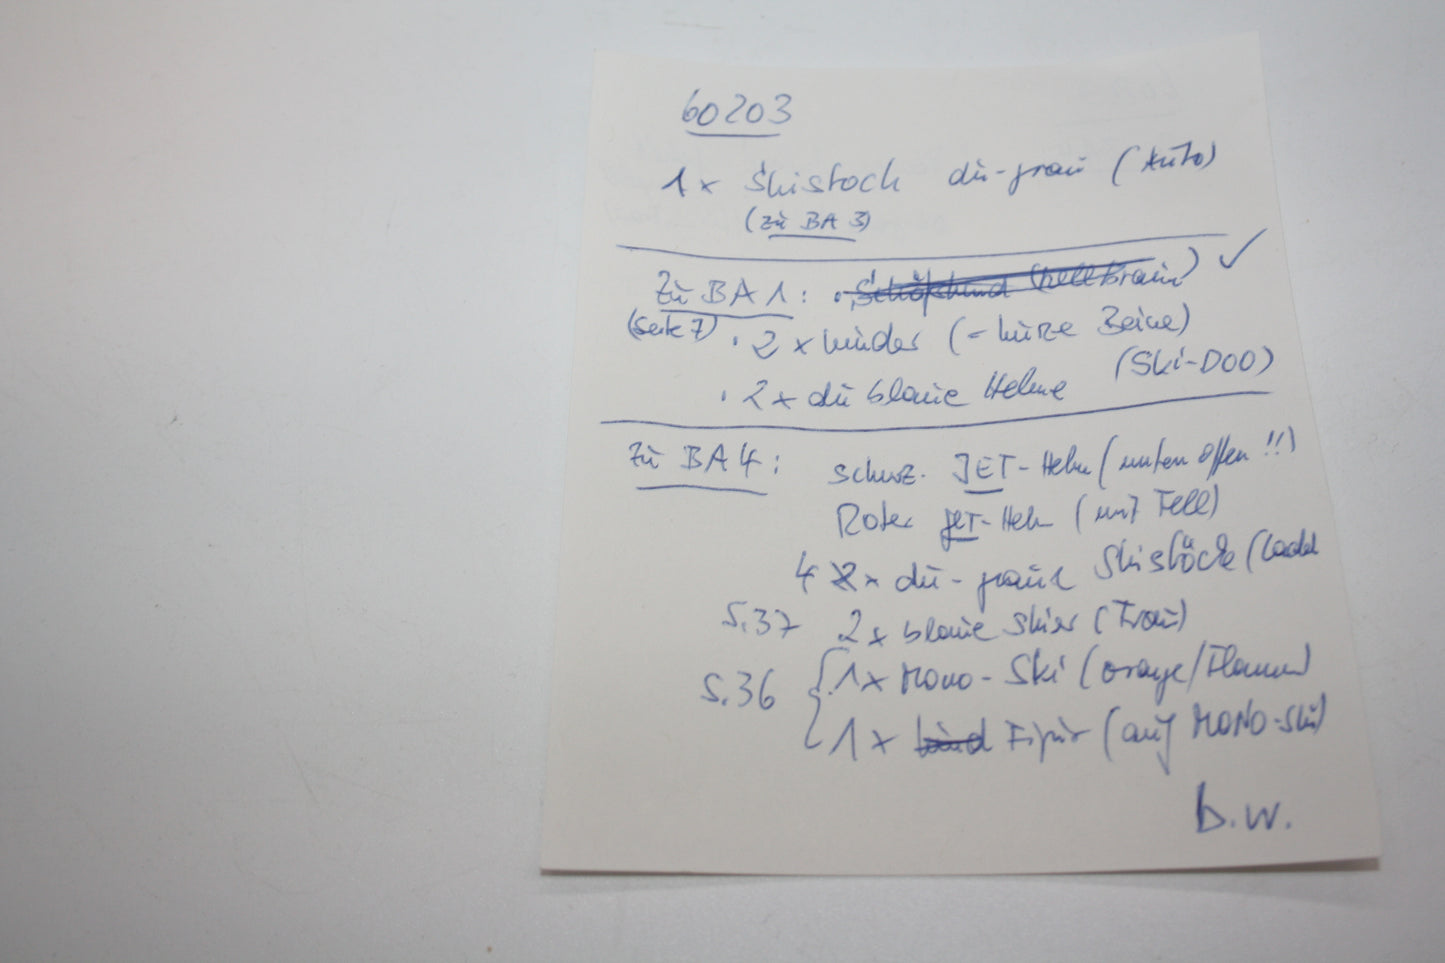 60203
1x Skistock du-grau (Auto)
(zu BA 3)
Zu BA 1: • Schäferhund (hellbraun) ✓
(Seite 7) • 2 x Kinder (= kurze Beine)
• 2x du blaue Helme (Ski-DOO)
Zu BA 4: schwz. JET-Helm (unten offen!!)
Roter JET-Helm (mit Fell)
4 x du-graue Skistöcke
S.37 2x blaue Skier (Frau)
S.36 { 1x Mono-Ski (orange/Flammen)
1x Kind Figur (auf MONO-Ski)
b.w.